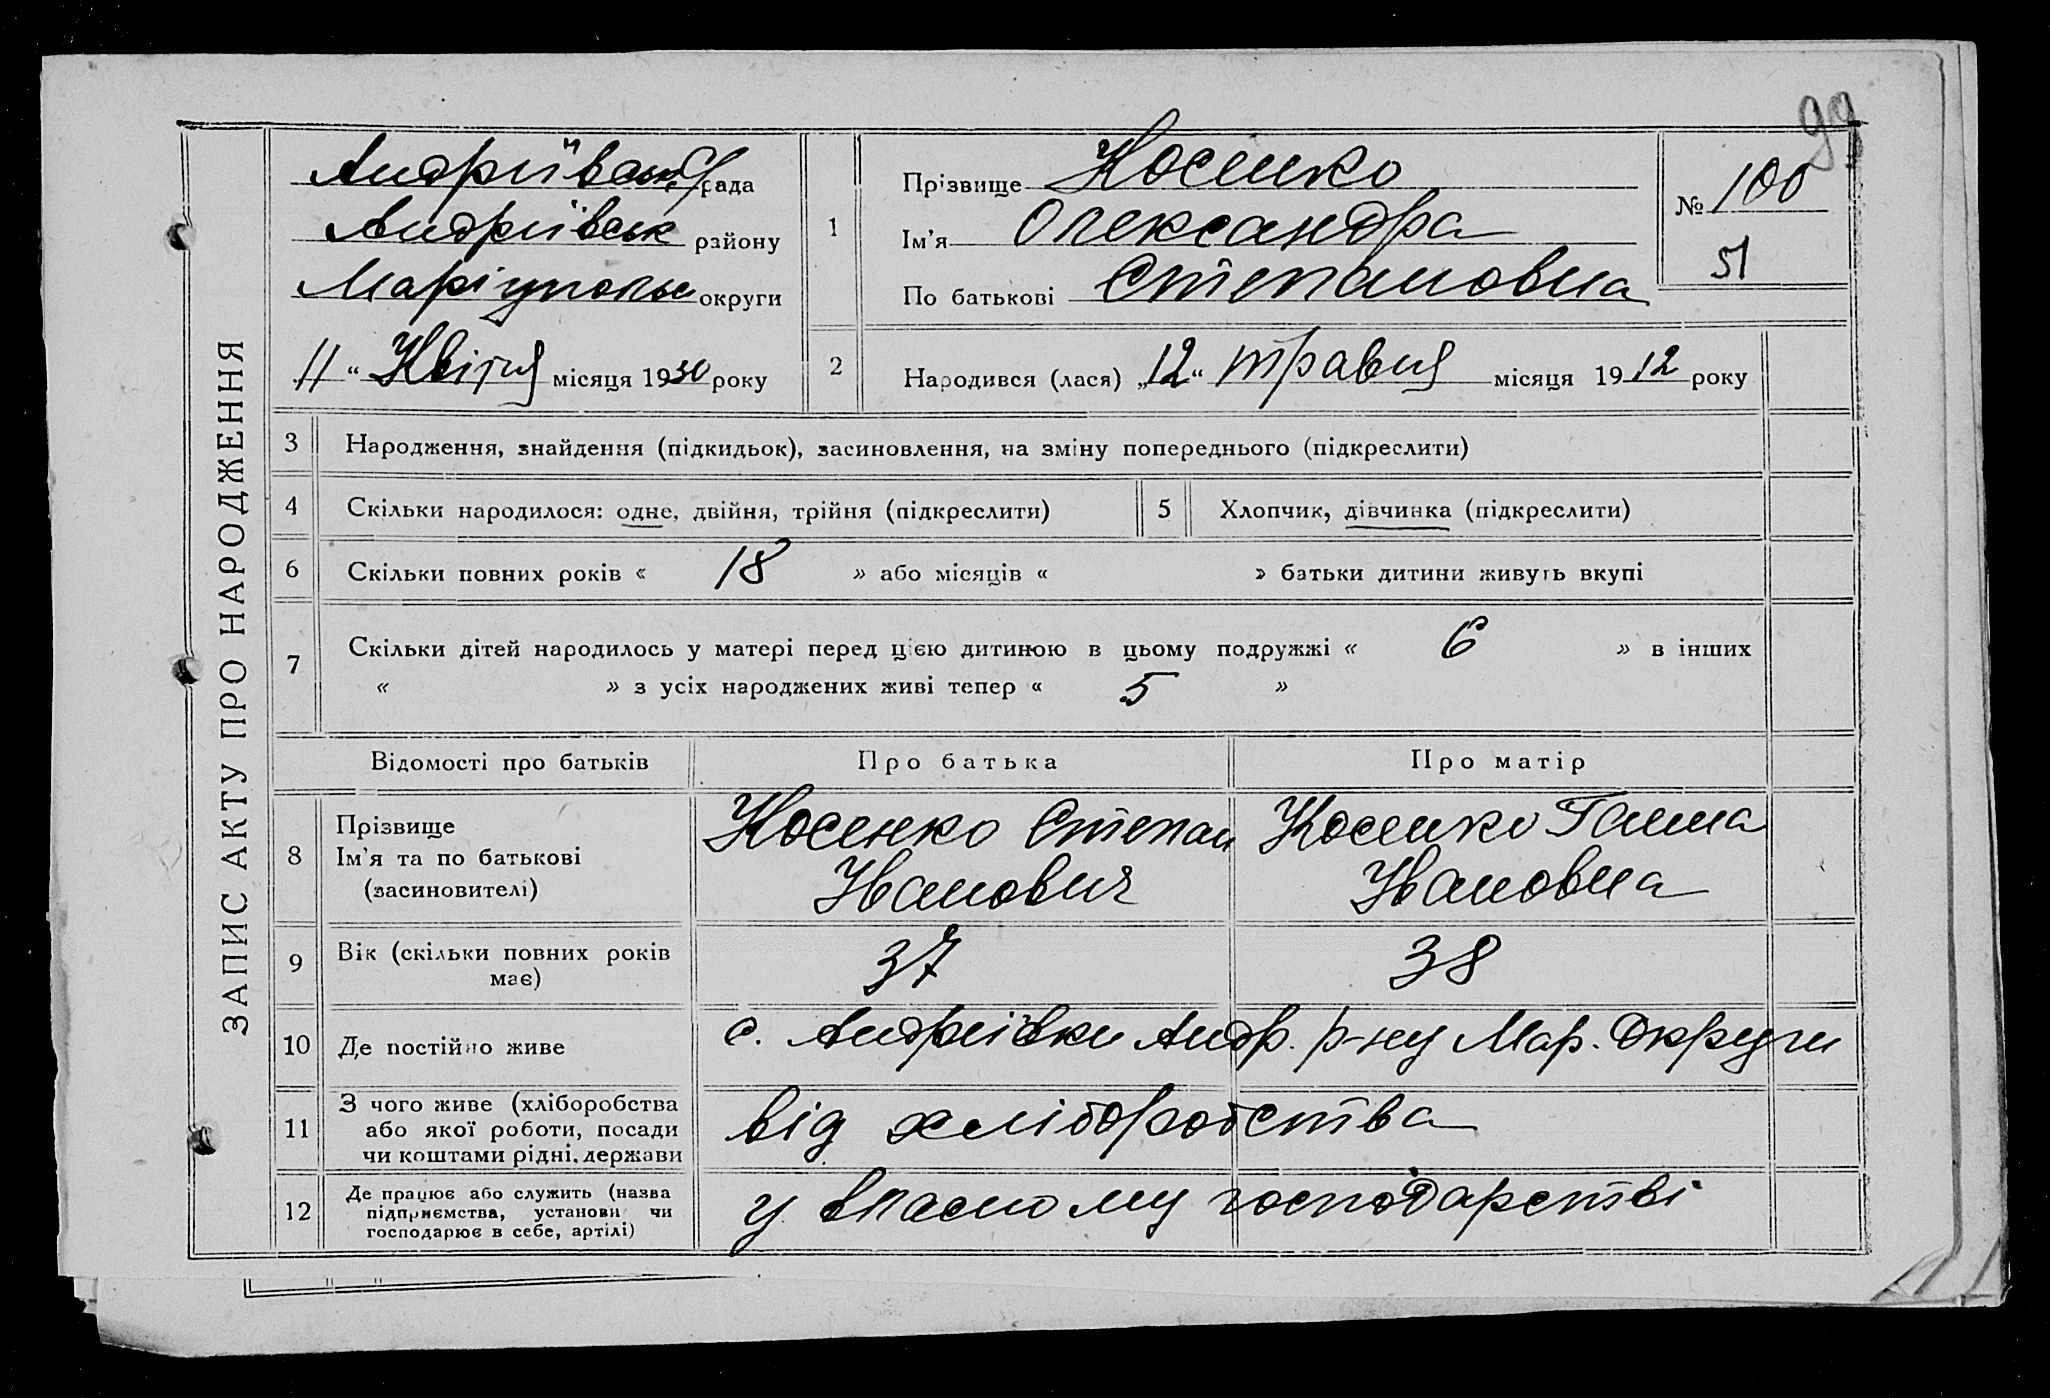 99
ЗАПИС АКТУ ПРО НАРОДЖЕННЯ
Андріївськ рада
Андріївськ району
Маріупольс округи
11 " Квітня місяця 1930 року
1
Прізвище Косенко
Ім'я Олександра
По батькові Степановна
№ 100
51
2
Народився (лася) „12" травня місяця 1912 року
3 Народження, знайдення (підкидьок), засиновлення, на зміну попереднього (підкреслити)
4 Скільки народилося: одне, двійня, трійня (підкреслити) 5 Хлопчик, дівчинка (підкреслити)
6 Скільки повних років « 18 » або місяців « » батьки дитини живуть вкупі
7 Скільки дітей народилось у матері перед цією дитиною в цьому подружжі « 6 » в інших
« » з усіх народжених живі тепер « 5 »
Відомості про батьків Про батька Про матір
8 Прізвище
Ім'я та по батькові
(засиновителі)
Косенко Степан
Іванович
Косенко Ганна
Івановна
9 Вік (скільки повних років
має)
37 38
10 Де постійно живе с. Андріївки Андр. р-ну Мар. Округи
11 З чого живе (хліборобства
або якої роботи, посади
чи коштами рідні, держави
від хліборобства
12 Де працює або служить (назва
підприємства, установи чи
господарює в себе, артілі)
у власному господарстві